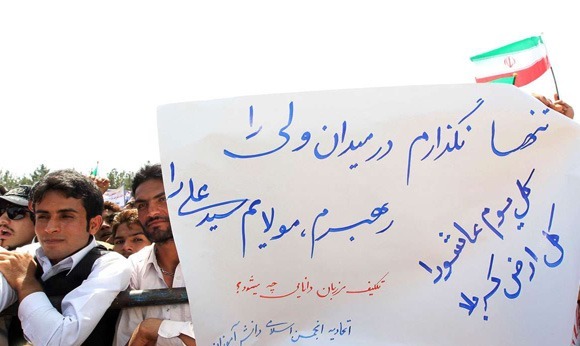 تنها نگذارم در میدان ولی را
رهبرم، مولایم سید علی را
کل یوم عاشورا
کل ارض کربلا
تکلیف مرزبان دانایی چه میشود؟
اتحادیه انجمن اسلامی دانش آموزان